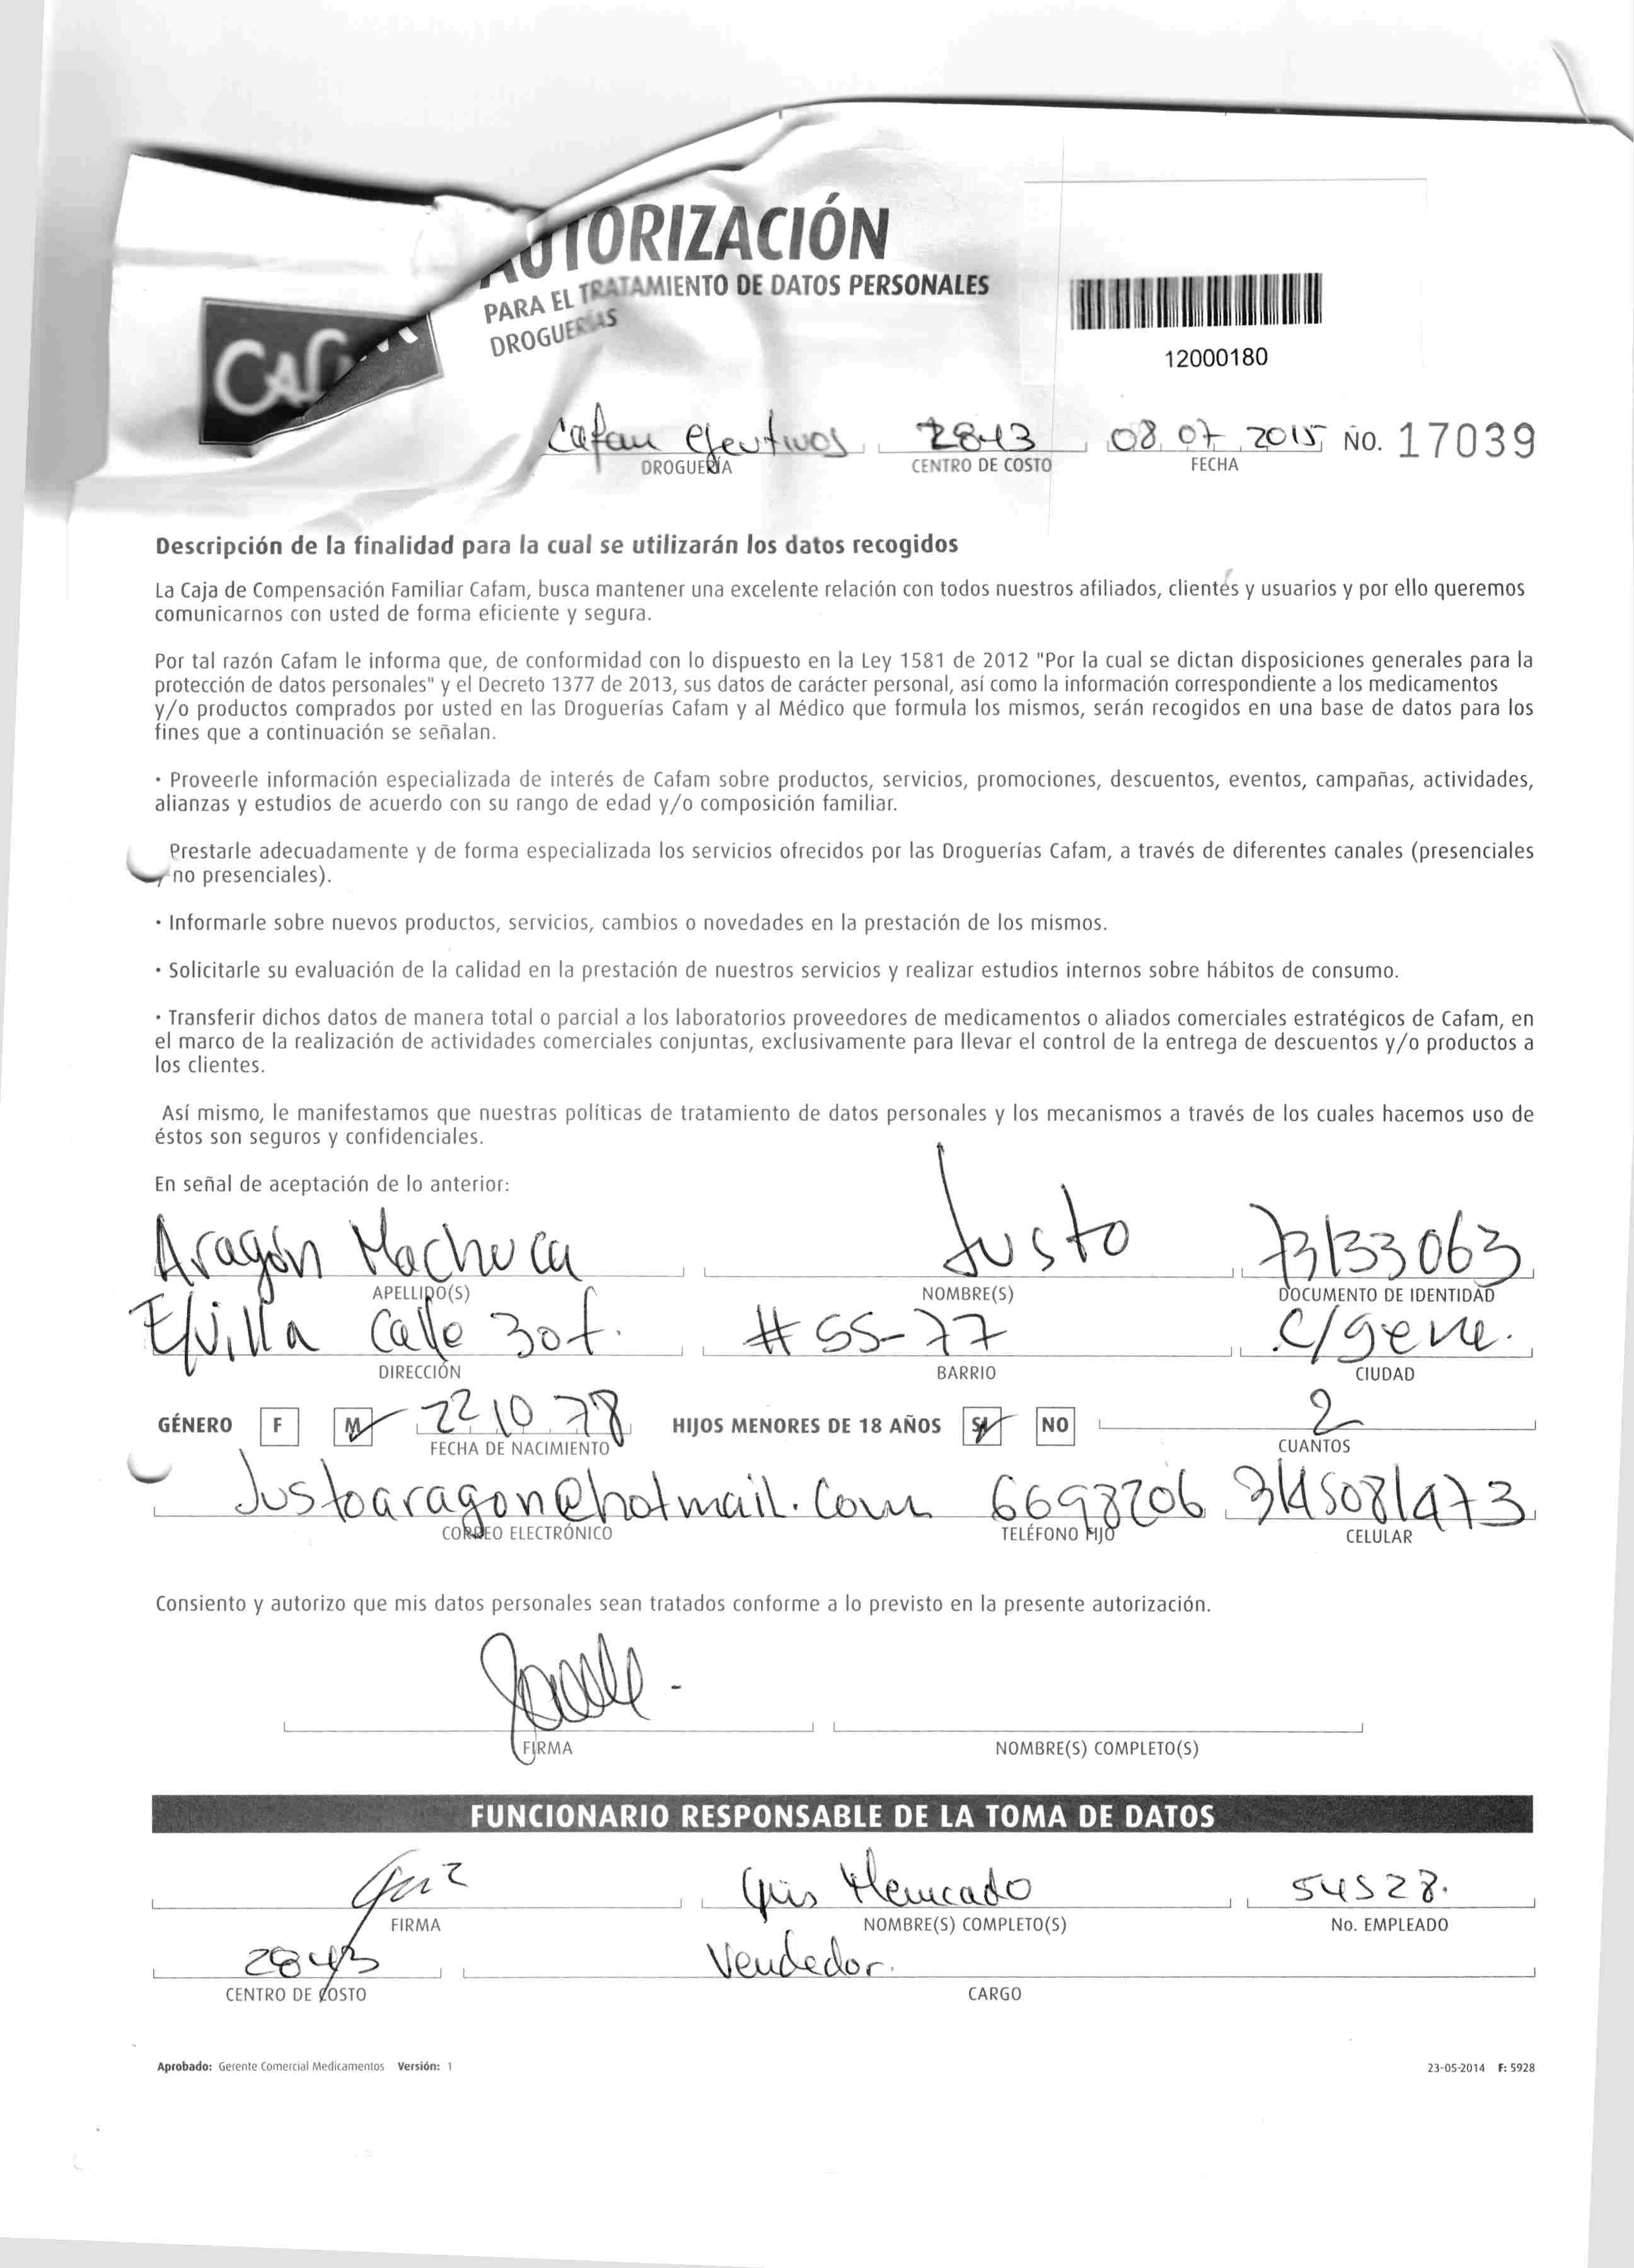 AUTORIZACIÓN
PARA EL TRATAMIENTO DE DATOS PERSONALES
DROGUERÍAS
12000180
Cafam ejecutivos 2843 08 07 2015 NO. 17039
DROGUERÍA CENTRO DE COSTO FECHA
Descripción de la finalidad para la cual se utilizarán los datos recogidos
La Caja de Compensación Familiar Cafam, busca mantener una excelente relación con todos nuestros afiliados, clientes y usuarios y por ello queremos
comunicarnos con usted de forma eficiente y segura.
Por tal razón Cafam le informa que, de conformidad con lo dispuesto en la Ley 1581 de 2012 "Por la cual se dictan disposiciones generales para la
protección de datos personales" y el Decreto 1377 de 2013, sus datos de carácter personal, así como la información correspondiente a los medicamentos
y/o productos comprados por usted en las Droguerías Cafam y al Médico que formula los mismos, serán recogidos en una base de datos para los
fines que a continuación se señalan.
· Proveerle información especializada de interés de Cafam sobre productos, servicios, promociones, descuentos, eventos, campañas, actividades,
alianzas y estudios de acuerdo con su rango de edad y/o composición familiar.
Prestarle adecuadamente y de forma especializada los servicios ofrecidos por las Droguerías Cafam, a través de diferentes canales (presenciales
y no presenciales).
· Informarle sobre nuevos productos, servicios, cambios o novedades en la prestación de los mismos.
· Solicitarle su evaluación de la calidad en la prestación de nuestros servicios y realizar estudios internos sobre hábitos de consumo.
· Transferir dichos datos de manera total o parcial a los laboratorios proveedores de medicamentos o aliados comerciales estratégicos de Cafam, en
el marco de la realización de actividades comerciales conjuntas, exclusivamente para llevar el control de la entrega de descuentos y/o productos a
los clientes.
Así mismo, le manifestamos que nuestras políticas de tratamiento de datos personales y los mecanismos a través de los cuales hacemos uso de
éstos son seguros y confidenciales.
En señal de aceptación de lo anterior:
Aragón Machuca Justo 73133063
APELLIDO(S) NOMBRE(S) DOCUMENTO DE IDENTIDAD
Calle 30f. # 55-77 C/gena.
DIRECCIÓN BARRIO CIUDAD
GÉNERO F M 22 10 78 HIJOS MENORES DE 18 AÑOS SI NO 2
FECHA DE NACIMIENTO CUANTOS
Justoaragon@hotmail.com 6698206 3145081473
CORREO ELECTRÓNICO TELÉFONO FIJO CELULAR
Consiento y autorizo que mis datos personales sean tratados conforme a lo previsto en la presente autorización.
FIRMA NOMBRE(S) COMPLETO(S)
FUNCIONARIO RESPONSABLE DE LA TOMA DE DATOS
54528.
FIRMA NOMBRE(S) COMPLETO(S) No. EMPLEADO
2843 Vendedor.
CENTRO DE COSTO CARGO
Aprobado: Gerente Comercial Medicamentos Versión: 1 23-05-2014 F: 5928